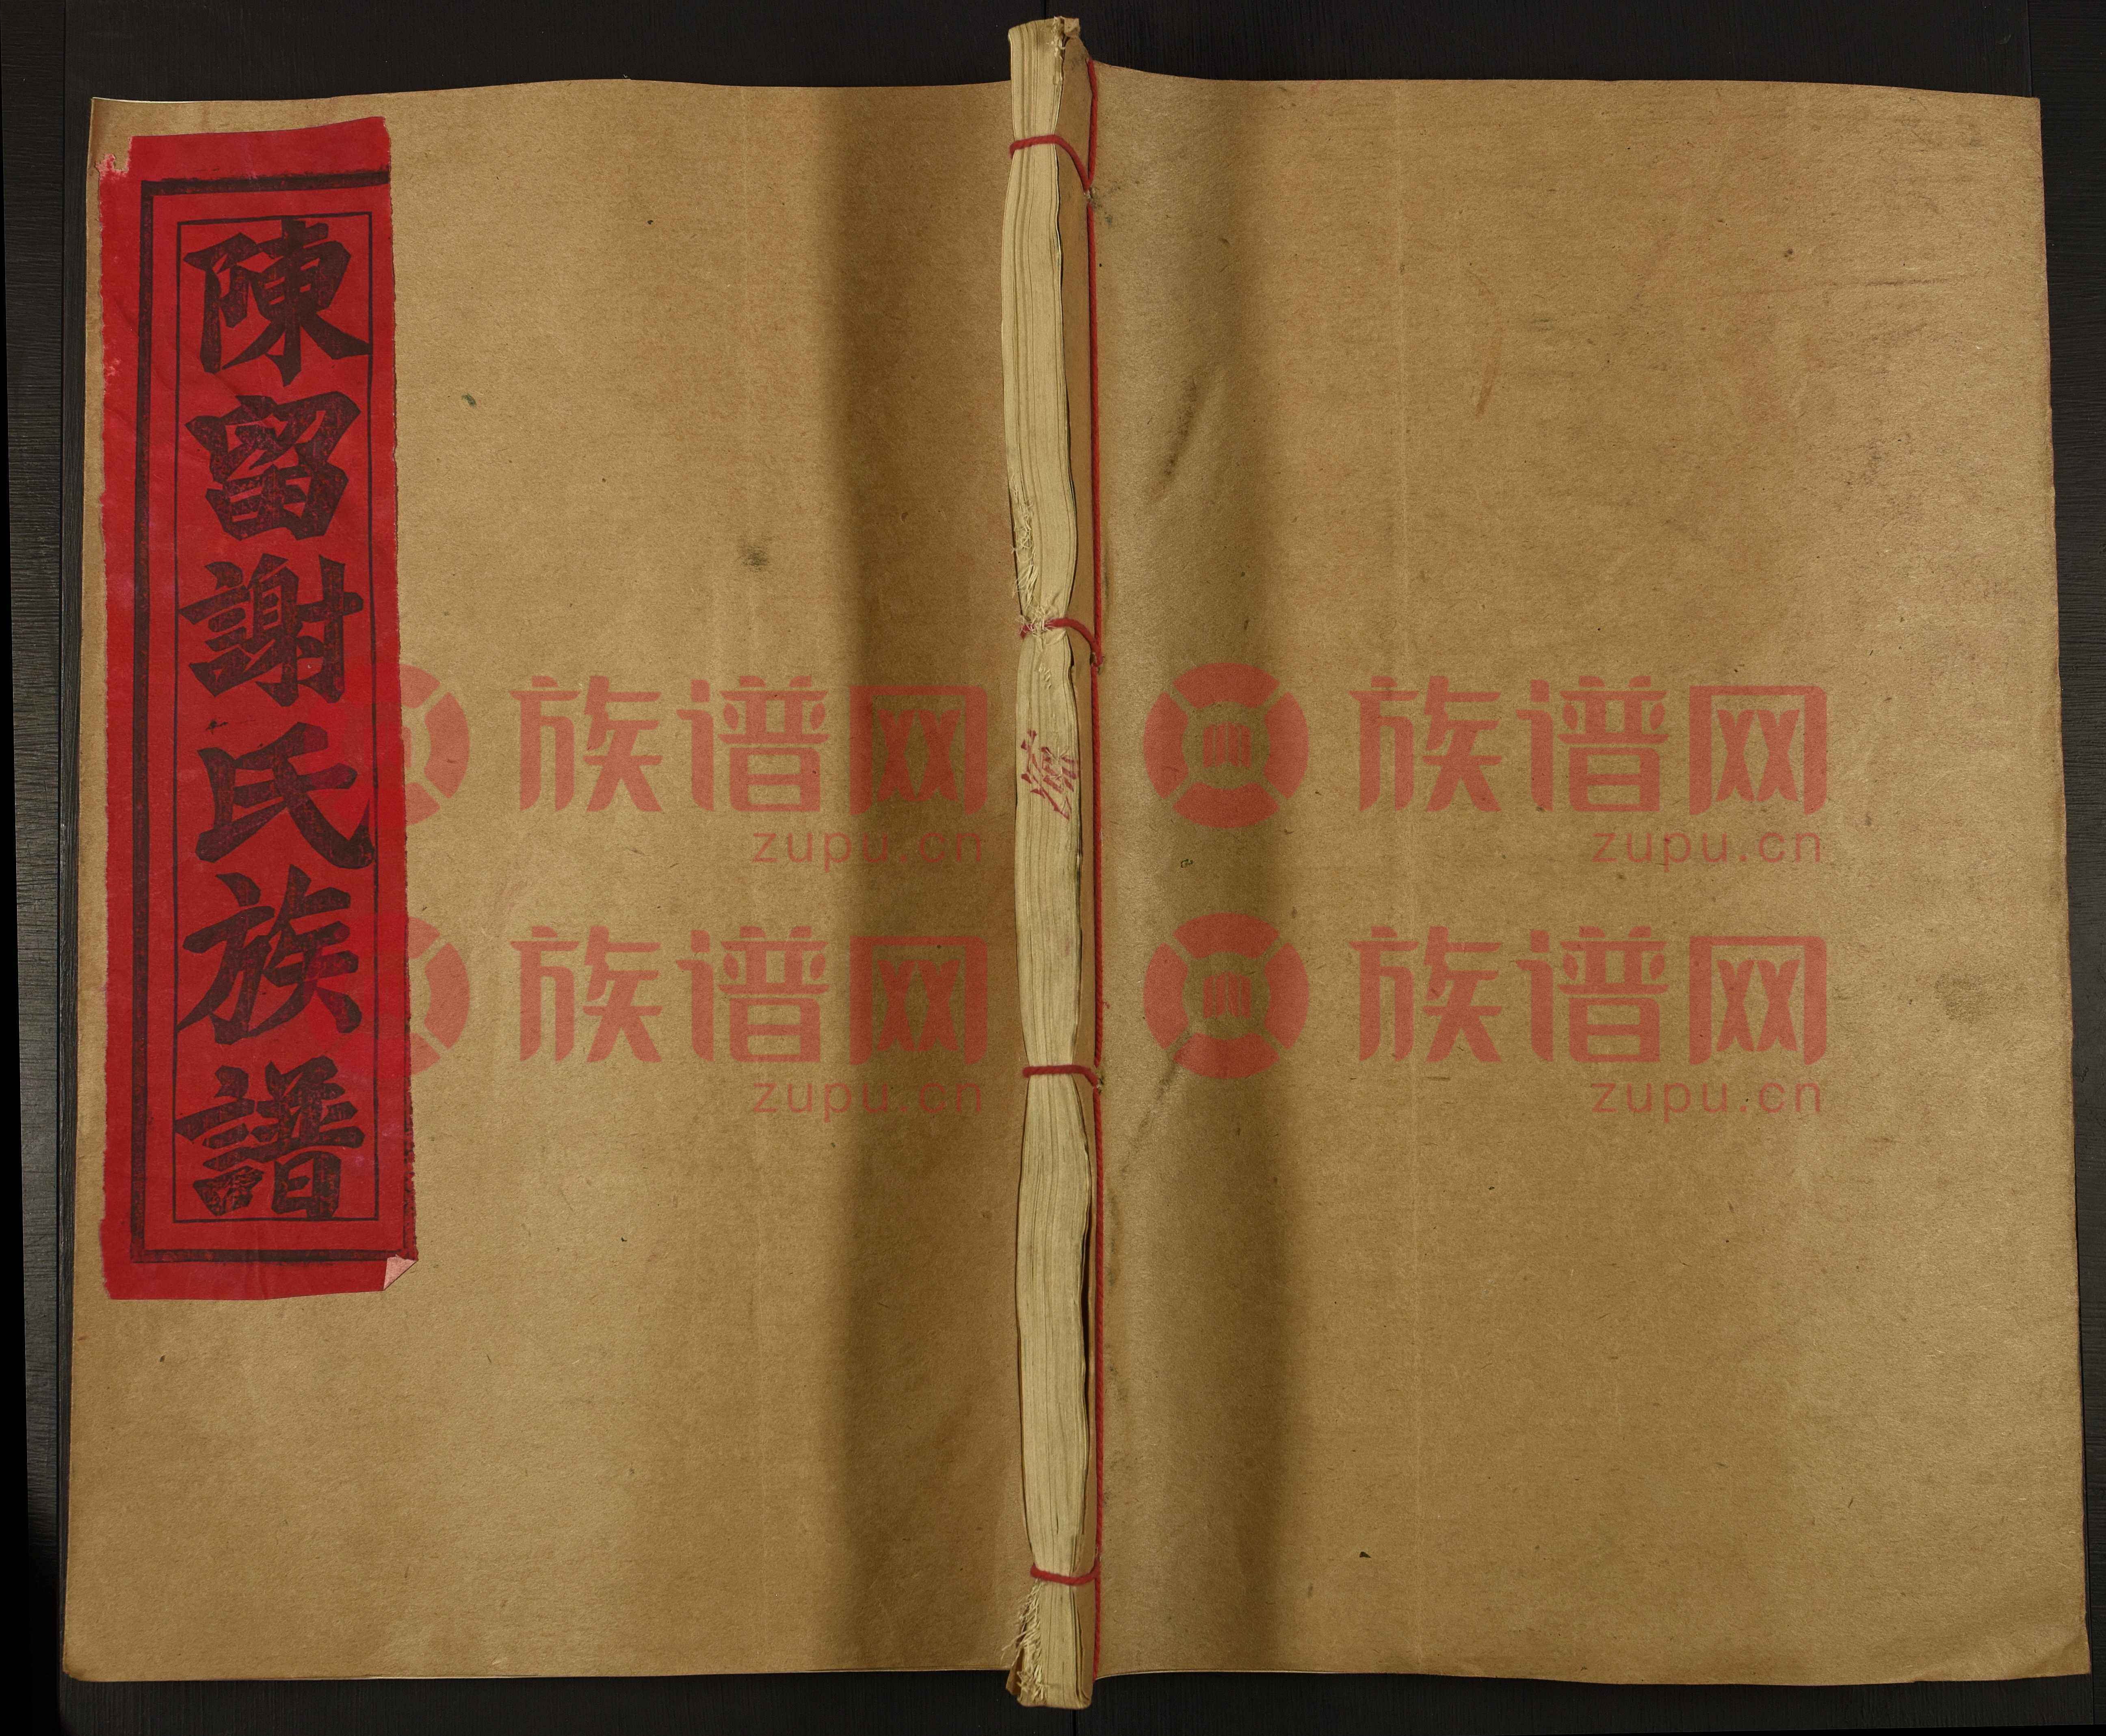 陳留謝氏族譜
族谱网
zupu.cn
族谱网
zupu.cn
族谱网
zupu.cn
族谱网
zupu.cn